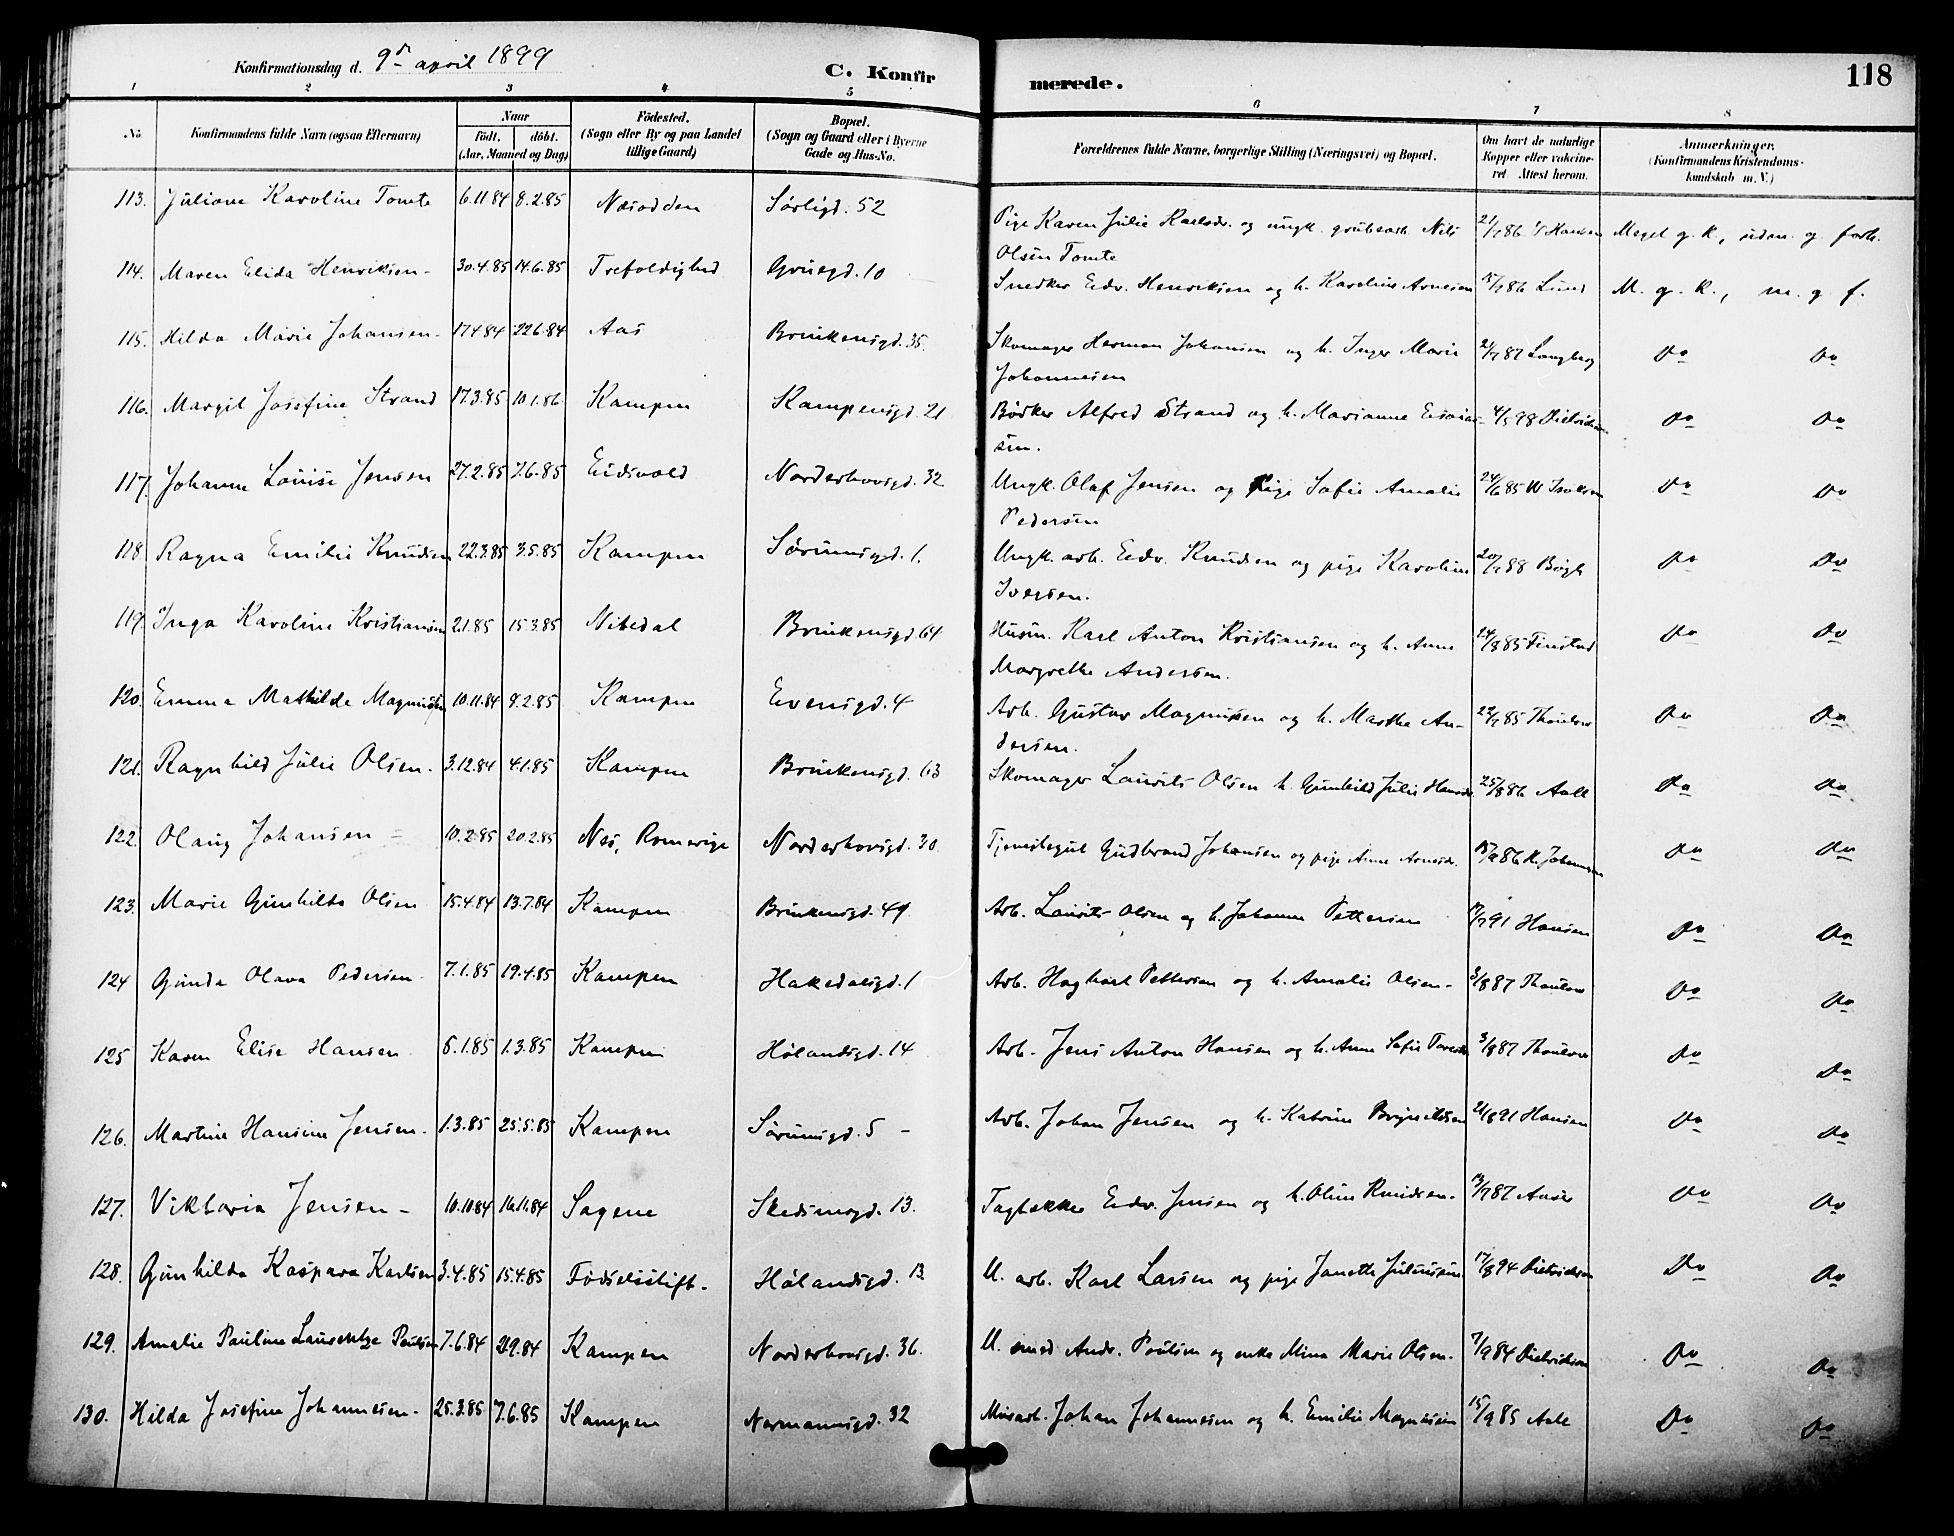 Konfirmationsdag d. 9de april 1899
C. Konfirmerede.
118
1 2 3 4 5 6 7 8
No. Konfirmandens fulde Navn (ogsaa Efternavn) Naar Födt. döbt. (Aar, Maaned og Dag) Födested. (Sogn eller By og paa Landet tillige Gaard) Bopæl. (Sogn og Gaard eller i Byerne Gade og Hus-No. Forældrenes fulde Navne, borgerlige Stilling (Næringsvei) og Bopæl. Om havt de naturlige Kopper eller vakcineret Attest herom. Anmærkninger. (Konfirmandens Kristendomskundskab m. V.)
113. Juliane Karoline Tomte 6.11.84 8.2.85 Næsodden Sørligd. 52 Pige Karen Julie Karlsdr. og ungk. grubearb. Nils Olsen Tomte 21/7 86 Hansen Meget g. k., udm. g. forh.
114. Maren Elida Henriksen - 30.4.85 14.6.85 Trefoldighed Gruegd. 10 Snedker Edv. Henriksen og h. Karoline Arnesen 15/7 86 Lund M. g. k., m. g. f.
115. Hilda Marie Johansen - 17.4.84 22.6.84 Aas Brinkensgd. 35 Skomager Herman Johansen og h. Inger Marie Johannesen 21/7 87 Langberg Do Do
116. Margit Josefine Strand 17.3.85 10.1.86 Kampen Kampensgd. 21 Bødker Alfred Strand og h. Marianne Esaiassen. 4/5 98 Dietrichson Do Do
117. Johanne Louise Jensen 27.2.85 7.6.85 Eidsvold Norderhovsgd. 32 Ungk. Olaf Jensen og Pige Sofie Amalie Pedersen 24/6 85 Do Do
118. Ragna Emilie Knudsen 22.3.85 3.5.85 Kampen Sørumsgd. 1. Ungk. arb. Edv. Knudsen og pige Karoline Iversen. 20/7 88 Bøgh Do Do
119. Inga Karoline Kristiansen 2.1.85 15.3.85 Nitedal Brinkensgd. 64 Husm. Karl Anton Kristiansen og h. Anne Margrethe Andersen. 24/8 85 Finstad Do Do
120. Emma Mathilde Magnussen 10.11.84 8.2.85 Kampen Evensgd. 4 Arb. Gustav Magnussen og h. Marthe Andersen. 22/7 85 Thaulow Do Do
121. Ragnhild Julie Olsen. 3.12.84 4.1.85 Kampen Brinkensgd. 63 Skomager Laurits Olsen h. Gunhild Julie Hansdr. 25/8 86 Aall Do Do
122. Olaug Johansen = 10.2.85 20.2.85 Næs, Romerige Norderhovsgd. 30 Tjenestegut Gudbrand Johansen og pige Anne Arnesdr. 15/9 86 K. Johannessen Do Do
123. Marie Gunhilda Olsen 15.4.84 13.7.84 Kampen Brinkensgd. 49 Arb. Laurits Olsen og h. Johanne Pettersen 17/7 91 Hansen Do Do
124 Gunda Olava Pedersen - 7.1.85 19.4.85 Kampen Hakedalsgd. 1 Arb. Hagbart Pettersen og h. Amalie Olsen - 3/8 87 Thaulow Do Do
125 Karen Elise Hansen 6.1.85 1.3.85 Kampen Hølandsgd. 14 Arb. Jens Anton Hansen og h. Anne Sofie 3/8 87 Thaulow Do Do
126. Martine Hansine Jensen - 1.3.85 25.5.85 Kampen Sørumsgd. 5 - Arb. Johan Jensen og h. Katrine Brynildsen 21/8 91 Hansen Do Do
127. Viktoria Jensen - 10.10.84 16.11.84 Sagene Skedsmogd. 13. Tagtækker Edv. Jensen og h. Oline Knudsen - 19/7 87 Do Do
128. Gunhilda Kaspara Karlsen 3.4.85 15.4.85 Fødselsstift - Hølandsgd. 13 U. arb. Karl Larsen og pige Janette Juliussen. 17/8 94 Dietrichson Do Do
129. Amalie Pauline Laurentze Poulsen 7.6.84 21.9.84 Kampen Norderhovsgd. 36. U. smed Andr. Poulsen og enke Mina Marie Olsen - 7/9 84 Dietrichson Do Do
130. Hilda Josefine Johannesen - 25.3.85 7.6.85 Kampen Normannsgd. 32 Murarb. Johan Johannesen og h. Emilie Magnussen 15/9 85 Aall Do Do